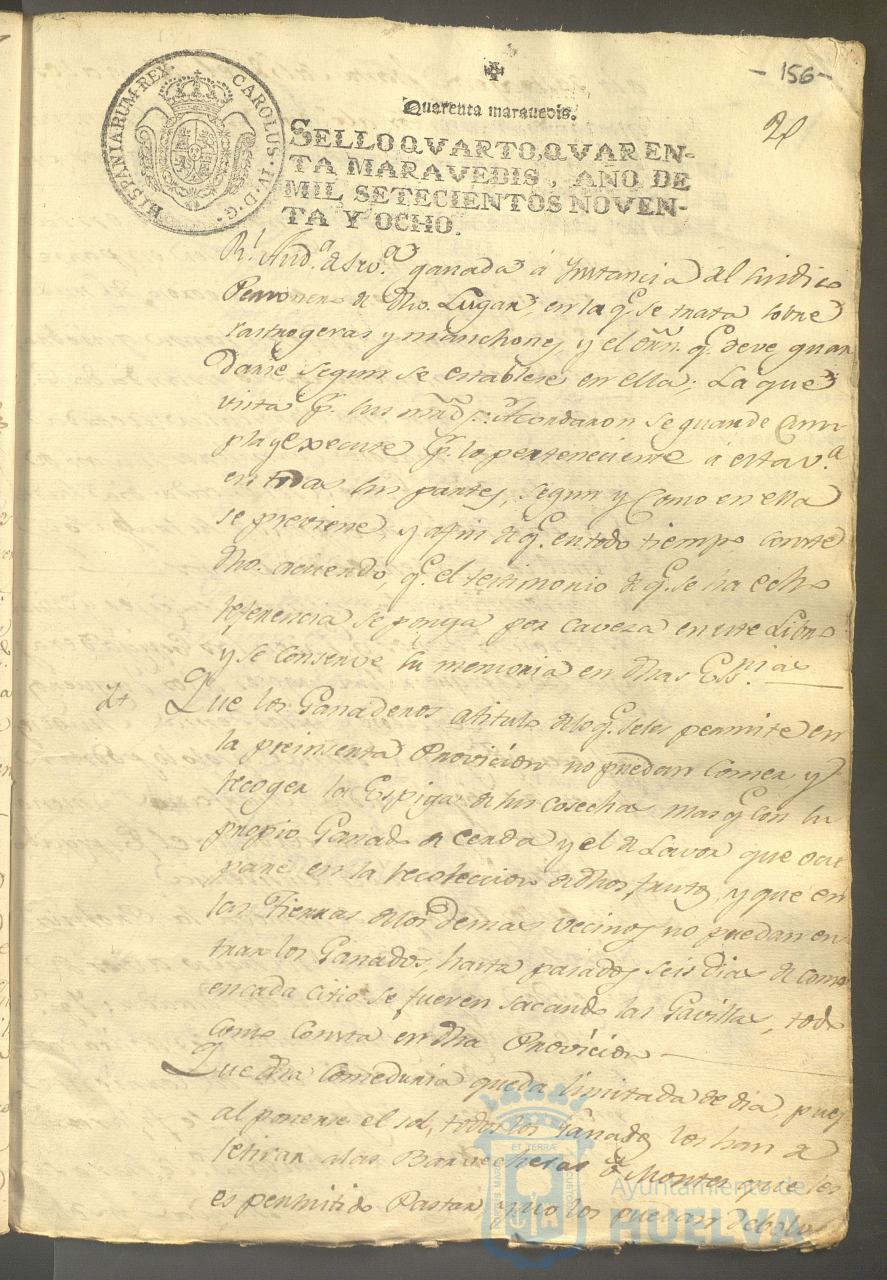 - 156 -
20
HISPANIARUM·REX· CAROLUS·IV·D·G·
Quarenta maravedis.
SELLO QVARTO, QVAREN-
TA MARAVEDIS, AÑO DE
MIL SETECIENTOS NOVEN-
TA Y OCHO.
Rl. Aud.a de Sev.a ganada á Instancia del Sindico
Personero de dho. Lugar, en la q.e se trata sobre
rastrogeras y manchones, y el orñ. q.e deve guar
darse segun se establese en ella: La que
vista p.r sus mrds. Acordaron se guarde Cum-
pla y execute p.r lo perteneciente á esta v.a
en todas sus partes, segun y Como en ella
se previene, y a fin de q.e en todo tiempo conste
dho. acuerdo, q.e el testimonio de q.e se ha echo
referencia se ponga por caveza en este Libro
y se conserve su memoria en dhas Ess.rias
Que los Ganaderos atitulo de lo q.e seles permite en
la preinserta Provicion no puedan Comer y
recoger la Espiga de sus cosechas mas q.e con su
propio Ganado de Cerda y el de Lavor que ocu
pare en la recoleccion de dhos. frutos, y que en
las Tierras de los demas vecinos no puedan en
trar los Ganados, hasta pasados seis dias de como
en cada citio se fueren sacando las Gavillas, todo
como consta en dha Provicion
Que dha Comeduria queda limitada de dia, pues
al ponerse el sol, todos los Ganados los han de
retirar alas Barvecheras ó Montes que les
es permitido Pastar, y no los puedan debolv
ET TERRÆ
CUSTO
Ayuntamiento de
HUELVA